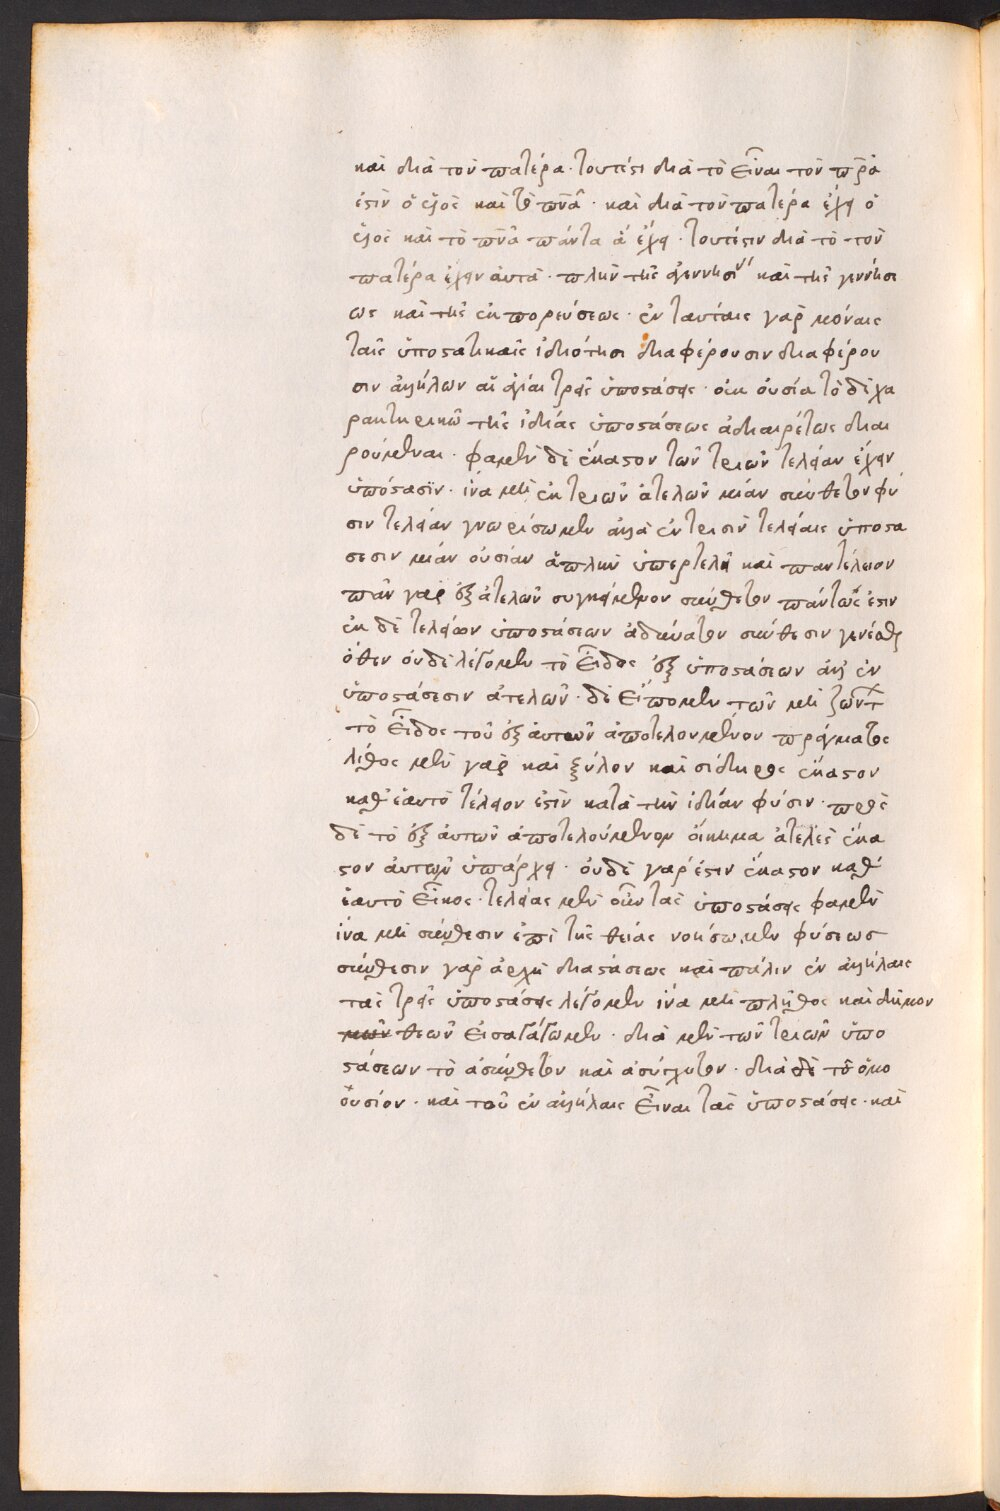 καὶ διὰ τὸν πατέρα· τουτέστι διὰ τὸ εἶναι τὸν πρ̅α
ἐστὶν ὁ υἱὸς καὶ τὸ πν̅α· καὶ διὰ τὸν πατέρα ἔχει ὁ
υἱὸς καὶ τὸ πν̅α πάντα ἃ ἔχει· τουτέστιν διὰ τὸ τὸν
πατέρα ἔχειν αὐτά· πλὴν τῆς ἀγεννησί καὶ τῆς γεννήσε
ως καὶ τῆς ἐκπορεύσεως· ἐν ταύταις γὰρ μόναις
ταῖς ὑποστατικαῖς ἰδιότησι διαφέρουσιν διαφέρου
σιν ἀλλήλων αἱ ἅγίαι τρεῖς ὑποστάσεις· οὐκ οὐσία τὸ δὲ χα
ρακτηρικῶ τῆς ἰδίας ὑποστάσεως ἀδιαιρέτως διαι
ρούμεναι· φαμὲν δὲ ἕκαστον τῶν τριῶν τελείαν ἔχειν
ὑπόστασιν· ἵνα μὴ ἐκ τριῶν ἀτελῶν μίαν σύνθετον φύ
σιν τελείαν γνωρίσωμεν ἀλλὰ ἐν τρισὶν τελείαις ὑποστα
σεσιν μίαν οὐσίαν ἁπλὴν ὑπερτελῆ καὶ παντέλειον
πᾶν γὰρ ἐξ ἀτελῶν συγκείμενον σύνθετον πάντως ἐστιν
ἐκ δὲ τελείων ὑποστάσεων ἀδύνατον σύνθεσιν γενέσθαι
ὅθεν οὐδὲ λέγομεν τὸ εἶδος ἐξ ὑποστάσεων ἀλλ' ἐν
ὑποστάσεσιν ἀτελῶν· δὲ εἴπομεν τῶν μὴ ζώντ
τὸ εἶδος τοῦ ἐξ αὐτῶν ἀποτελουμένου πράγματος
λίθος μὲν γὰρ καὶ ξύλον καὶ σίδηρος ἕκαστον
καθ' ἑαυτὸ τέλειον ἐστὶν κατὰ τὴν ἰδίαν φύσιν· πρὸς
δὲ τὸ ἐξ αὐτῶν ἀποτελούμενον οἴκημα ἀτελὲς ἕκα
στον αὐτῶν ὑπάρχει· οὐδὲ γάρ ἐστιν ἕκαστον καθ'
ἑαυτὸ εἶκος· τελείας μὲν οὖν τὰς ὑποστάσεις φαμὲν
ἵνα μὴ σύνθεσιν ἐπὶ τῆς θείας νοήσωμεν φύσεως
σύνθεσιν γὰρ ἀρχὴ διαστάσεως καὶ πάλιν ἐν ἀλλήλαις
τὰς τρεῖς ὑποστάσεις λέγομεν ἵνα μὴ πλῆθος καὶ δῆμον
θεῶν εἰσαγάγωμεν· διὰ μὲν τῶν τριῶν ὑπο
στάσεων τὸ ἀσύνθετον καὶ ἀσύγχυτον· διὰ δὲ τὸ ὁμο
ούσιον· καὶ τοῦ ἐν ἀλλήλαις εἶναι τὰς ὑποστάσεις· καὶ